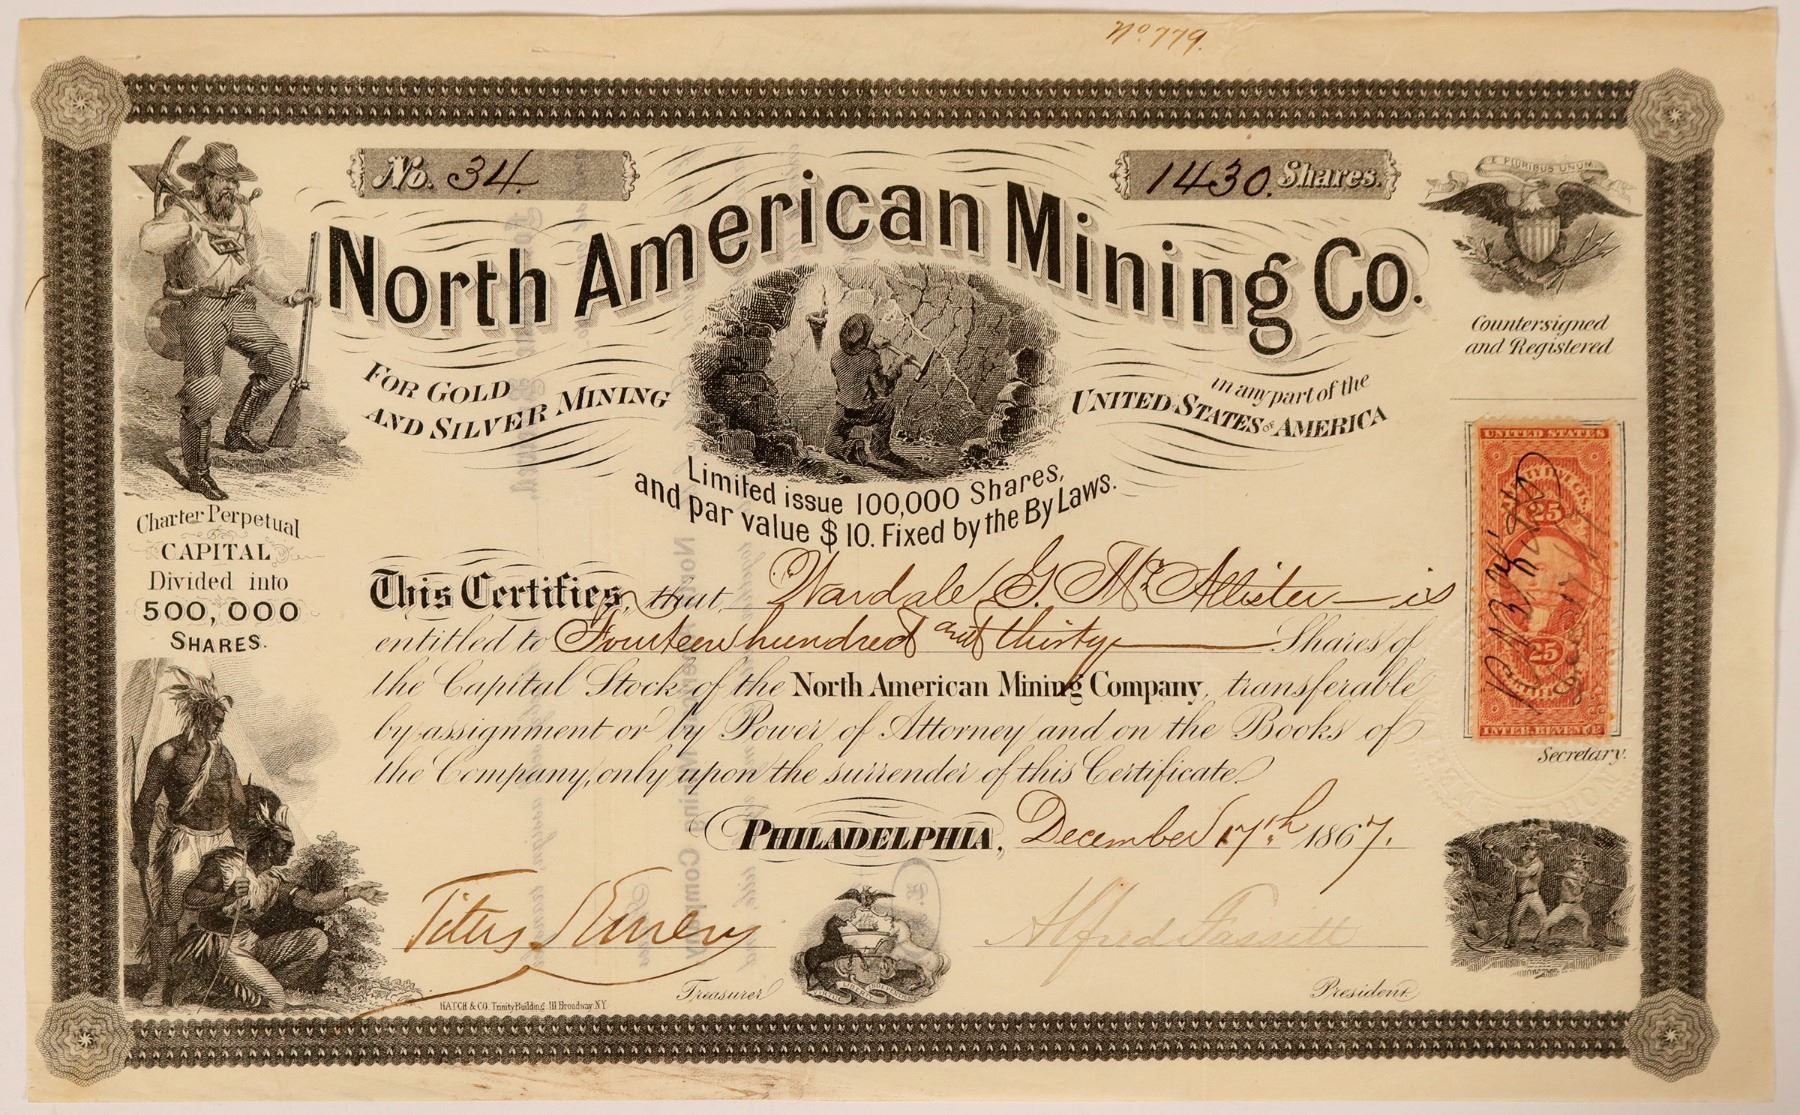 No. 779.
No. 34.
1430. Shares.
E PLURIBUS UNUM
North American Mining Co.
Countersigned
and Registered
FOR GOLD
AND SILVER MINING
in any part of the
UNITED STATES OF AMERICA
Limited issue 100,000 Shares,
and par value $10. Fixed by the By Laws.
UNITED STATES
25
25
INTER. REVENUE
Charter Perpetual
CAPITAL
Divided into
500,000
SHARES.
This Certifies, that Wardale G. Mc Allister is
entitled to Fourteen hundred and thirty Shares of
the Capital Stock of the North American Mining Company, transferable
by assignment or by Power of Attorney and on the Books of
the Company, only upon the surrender of this Certificate.
Secretary.
PHILADELPHIA, December 17th 1867.
Titus S Emery
Alfred Fassitt
Treasurer
President
HATCH & CO. Trinity Building 111 Broadway NY